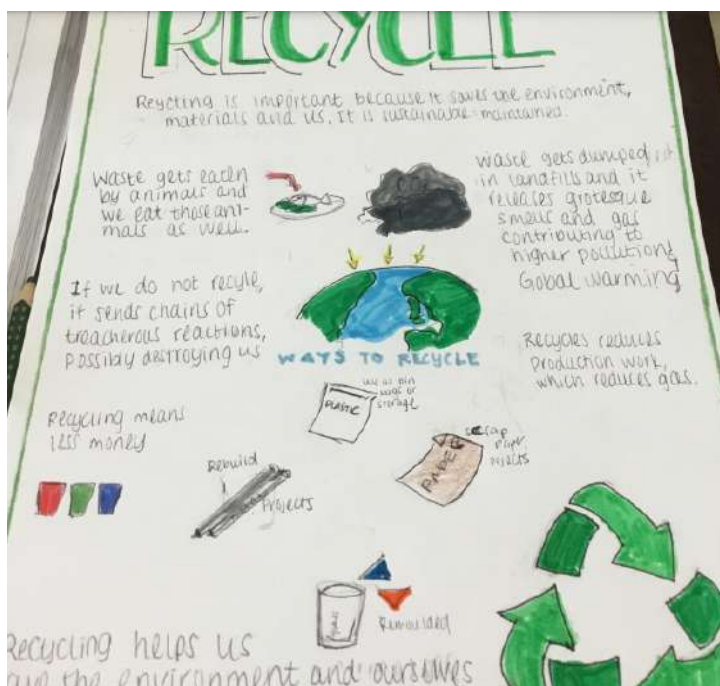 RECYCLE
Reycting is important because it saves the environment,
materials and us. It is sustainable maintained.
Waste gets eaten
by animals and
we eat those ani-
mals as well.
CO₂
Waste gets dumped
in landfills and it
releases grotesque
smells and gas
contributing to
higher pollution,
Gobal warming
If we do not recyle,
it sends chains of
treacherous reactions,
possibly destroying us
WAYS TO RECYCLE
Recycles reduces
Production work,
which reduces gas.
PLASTIC
use as bin
bags or
storage
Recycling means
less money
Rebuild
Projects
PAPER
scrap
paper
projects
Remoulded
Recycling helps us
the environment and ourselves